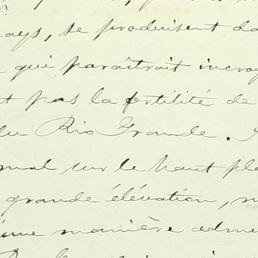 ays, se produisent da
qui paraîtrait incroy
t pas la fertilité de
du Rio Grande.
mal sur le haut pl
grande élévation,
'une manière adm